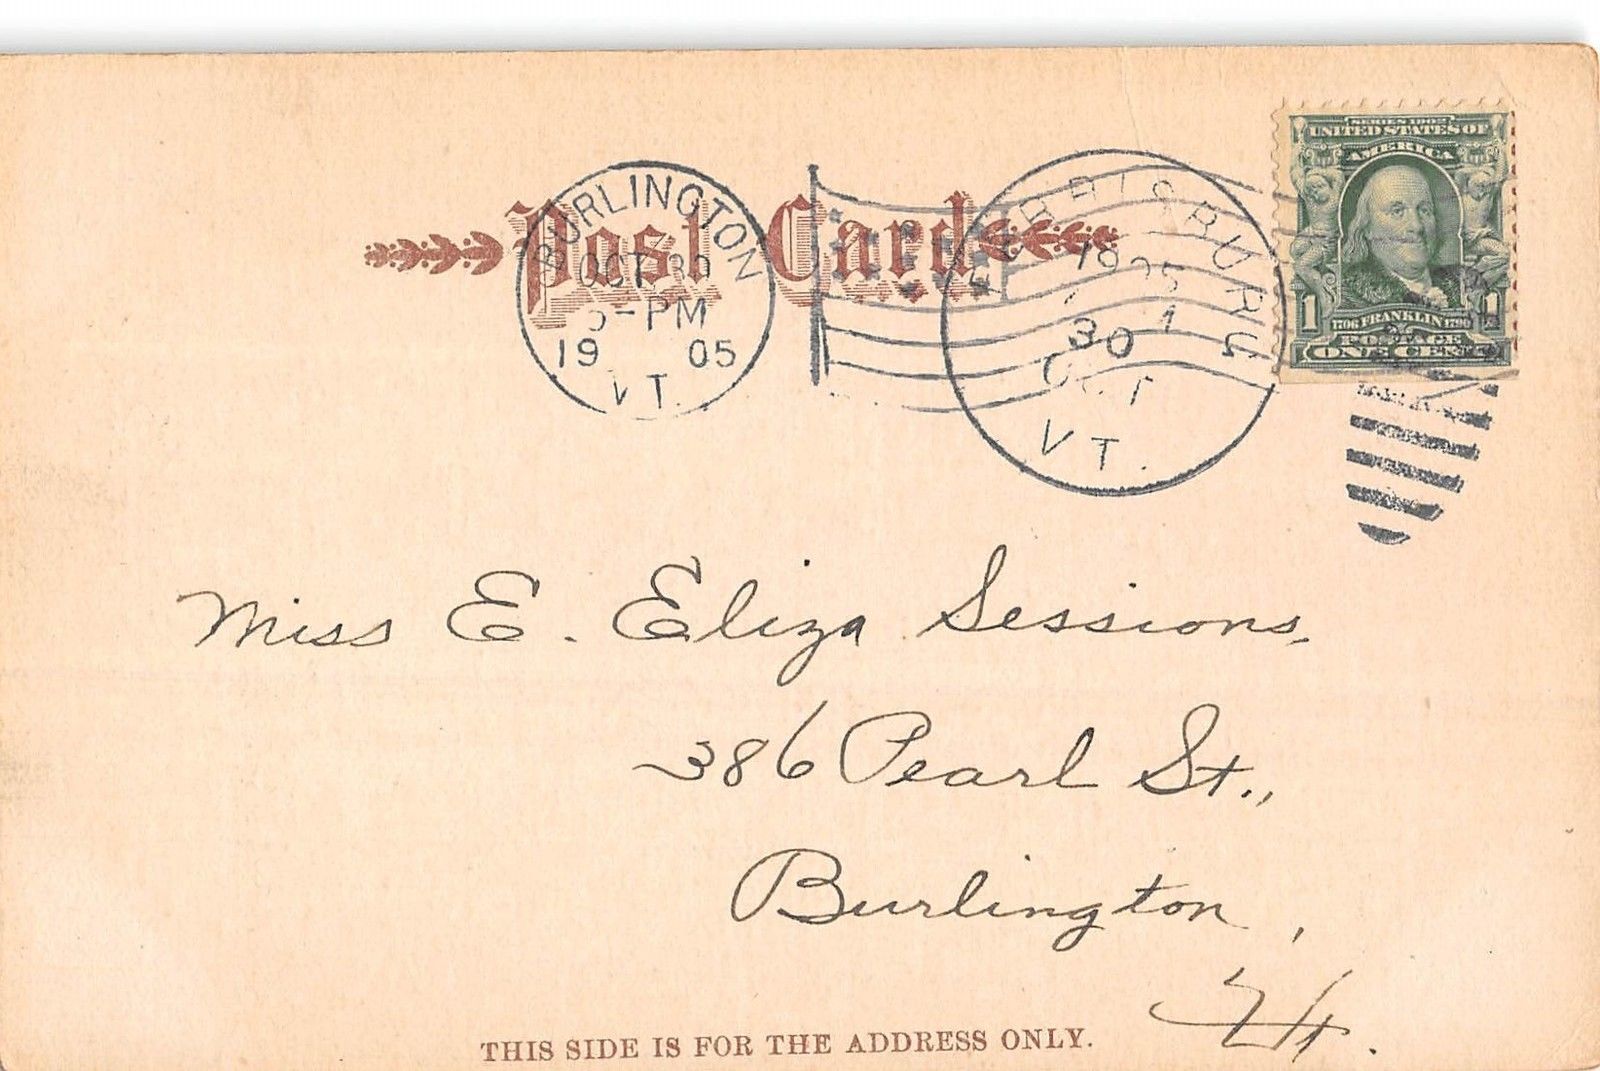 Post Card
BURLINGTON
OCT 30
-PM
19 05
VT.
1905
30
OCT
VT.
SERIES 1902
UNITED STATES OF
AMERICA
1 1
1706 FRANKLIN 1790
POSTAGE
ONE CENT
Miss E. Eliza Sessions,
386 Pearl St.,
Burlington,
Vt.
THIS SIDE IS FOR THE ADDRESS ONLY.